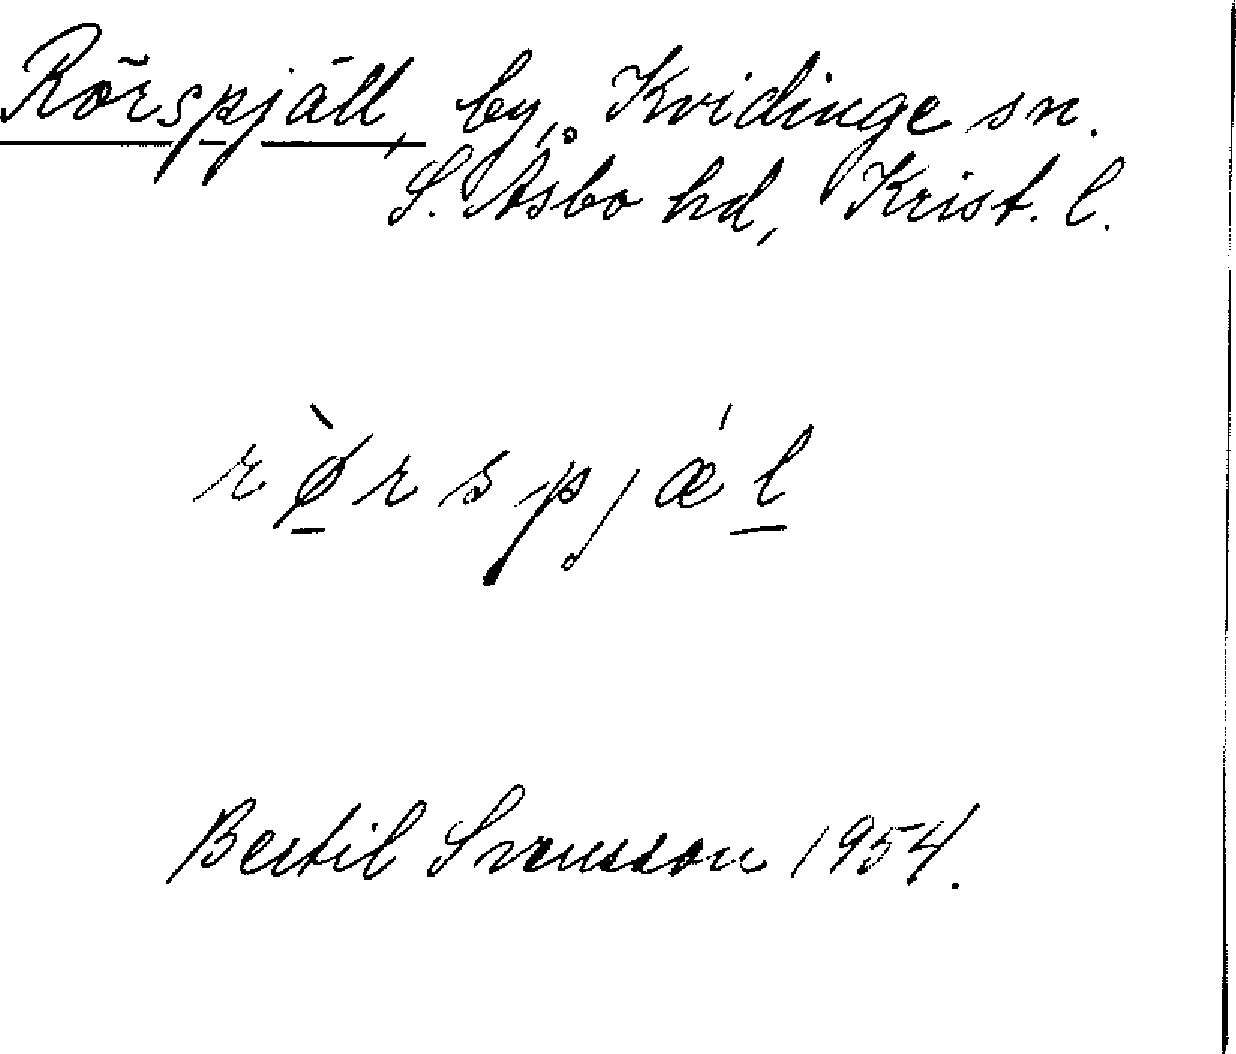 Rörspjäll, by, Kvidinge sn.
S. Åsbo hd, Krist. l.
rø̀rspjǽl
Bertil Svensson 1954.